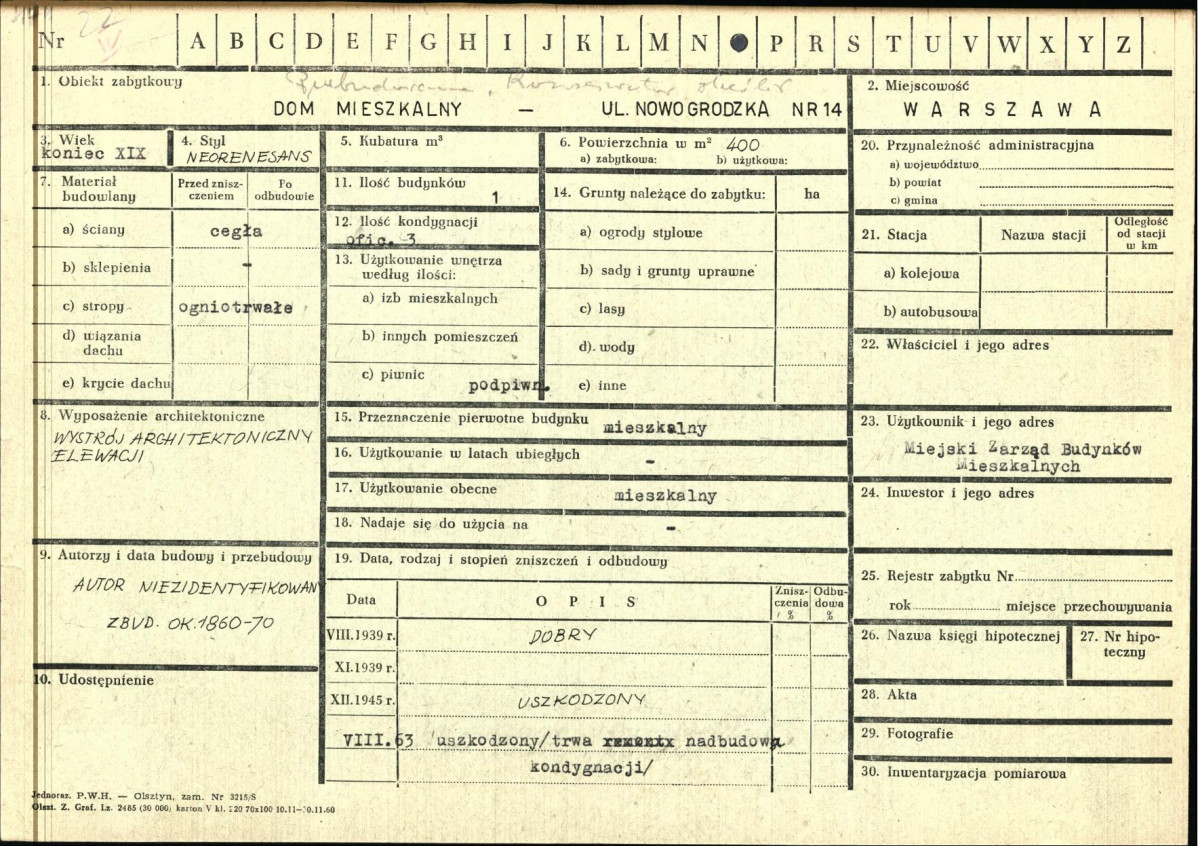 Nr 22 A B C D E F G H I J K L M N P R S T U V W X Y Z
1. Obiekt zabytkowy
DOM MIESZKALNY — UL. NOWOGRODZKA NR 14
2. Miejscowość
WARSZAWA
3. Wiek
koniec XIX
4. Styl
NEORENESANS
5. Kubatura m³
6. Powierzchnia w m² 400
a) zabytkowa: b) użytkowa:
7. Materiał budowlany
Przed znisz-
czeniem
Po
odbudowie
a) ściany cegła
b) sklepienia -
c) stropy ogniotrwałe
d) wiązania
dachu
e) krycie dachu
8. Wyposażenie architektoniczne
WYSTRÓJ ARCHITEKTONICZNY
ELEWACJI
9. Autorzy i data budowy i przebudowy
AUTOR NIEZIDENTYFIKOWANY
ZBUD. OK. 1860-70
10. Udostępnienie
11. Ilość budynków
1
12. Ilość kondygnacji
ofic. 3
13. Użytkowanie wnętrza
według ilości:
a) izb mieszkalnych
b) innych pomieszczeń
c) piwnic
podpiwn.
14. Grunty należące do zabytku: ha
a) ogrody stylowe
b) sady i grunty uprawne
c) lasy
d) wody
e) inne
15. Przeznaczenie pierwotne budynku mieszkalny
16. Użytkowanie w latach ubiegłych -
17. Użytkowanie obecne mieszkalny
18. Nadaje się do użycia na -
19. Data, rodzaj i stopień zniszczeń i odbudowy
Data OPIS
Znisz-
czenia
%
Odbu-
dowa
%
VIII.1939 r. DOBRY
XI.1939 r.
XII.1945 r. USZKODZONY
VIII.63 uszkodzony/trwa nadbudowa
kondygnacji/
20. Przynależność administracyjna
a) województwo
b) powiat
c) gmina
21. Stacja Nazwa stacji
Odległość
od stacji
w km
a) kolejowa
b) autobusowa
22. Właściciel i jego adres
23. Użytkownik i jego adres
Miejski Zarząd Budynków
Mieszkalnych
24. Inwestor i jego adres
25. Rejestr zabytku Nr
rok miejsce przechowywania
26. Nazwa księgi hipotecznej
27. Nr hipo-
teczny
28. Akta
29. Fotografie
30. Inwentaryzacja pomiarowa
Jednoraz. P.W.H. — Olsztyn, zam. Nr 3215/S
Olszt. Z. Graf. Lz. 2485 (30 000) karton V kl. 220 70x100 10.11—30.11.60